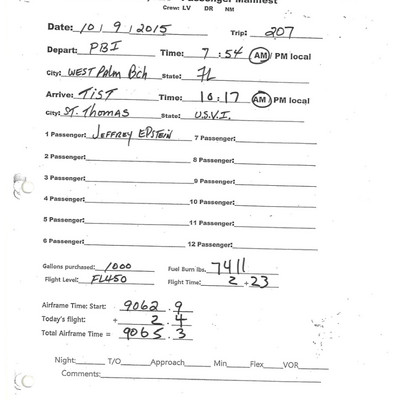 Passenger Manifest
Crew: LV DR NM
Date: 10 / 9 / 2015 Trip: 207
Depart: PBI Time: 7 : 54 AM / PM local
City: WEST PALM BCH State: FL
Arrive: TIST Time: 10 : 17 AM / PM local
City: ST. THOMAS State: U.S.V.I.
1 Passenger: JEFFREY EPSTEIN 7 Passenger:
2 Passenger: 8 Passenger:
3 Passenger: 9 Passenger:
4 Passenger: 10 Passenger:
5 Passenger: 11 Passenger:
6 Passenger: 12 Passenger:
Gallons purchased: 1000 Fuel Burn lbs. 7411
Flight Level: FL450 Flight Time: 2 + 23
Airframe Time: Start: 9062 . 9
Today's flight: + 2 . 4
Total Airframe Time = 9065 . 3
Night: T/O Approach Min Flex VOR
Comments: